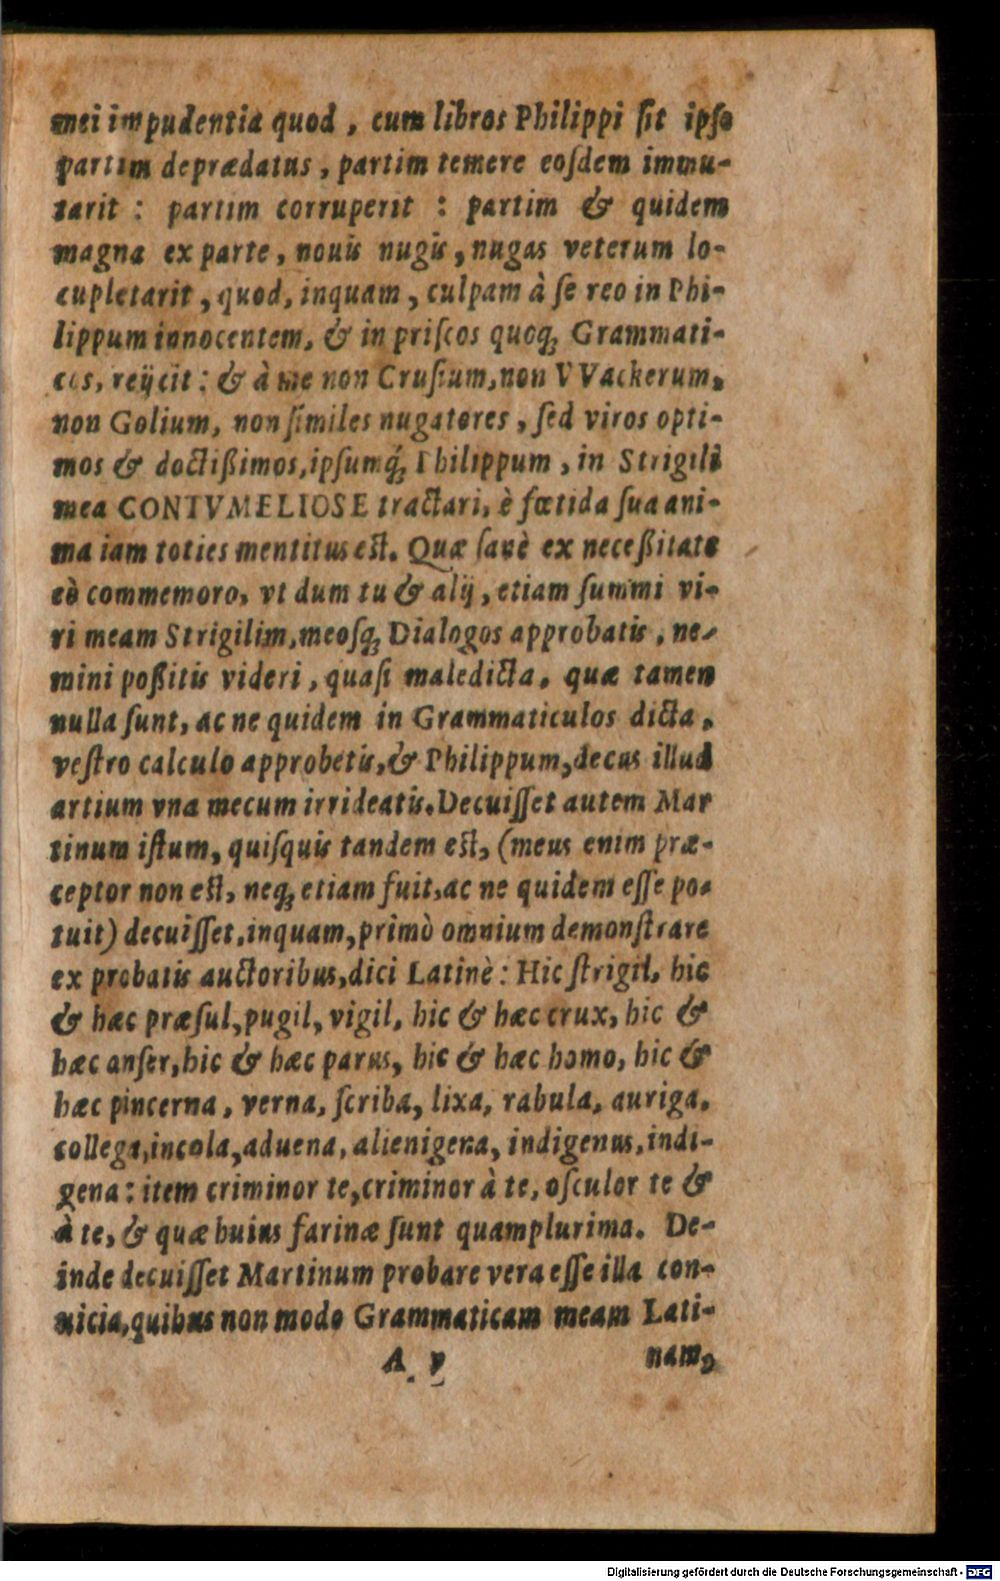 mei impudentia quod, cum libros Philippi sit ipse
partim deprædatus, partim temere eosdem immu-
tarit : partim corruperit : partim & quidem
magna ex parte, nouis nugis, nugas veterum lo-
cupletarit, quod, inquam, culpam à se reo in Phi-
lippum innocentem, & in priscos quoq; Grammati-
cos, reijcit: & à me non Crusium, non VVackerum,
non Golium, non similes nugatores, sed viros opti-
mos & doctißimos, ipsumq́; Philippum, in Strigili
mea CONTVMELIOSE tractari, è fœtida sua ani-
ma iam toties mentitus est. Quæ sanè ex neceßitate
eò commemoro, vt dum tu & alij, etiam summi vi-
ri meam Strigilim, meosq; Dialogos approbatis, ne-
mini poßitis videri, quasi maledicta, quæ tamen
nulla sunt, ac ne quidem in Grammaticulos dicta,
vestro calculo approbetis, & Philippum, decus illud
artium vna mecum irrideatis. Decuisset autem Mar
tinum istum, quisquis tandem est, (meus enim præ-
ceptor non est, neq; etiam fuit, ac ne quidem esse po-
tuit) decuisset, inquam, primò omnium demonstrare
ex probatis auctoribus, dici Latinè: Hic strigil, hic
& hæc præsul, pugil, vigil, hic & hæc crux, hic &
hæc anser, hic & hæc parus, hic & hæc homo, hic &
hæc pincerna, verna, scriba, lixa, rabula, auriga,
collega, incola, aduena, alienigena, indigenus, indi-
gena: item criminor te, criminor à te, osculor te &
à te, & quæ huius farinæ sunt quamplurima. De-
inde decuisset Martinum probare vera esse illa con-
uicia, quibus non modo Grammaticam meam Lati-
A v nam,
Digitalisierung gefördert durch die Deutsche Forschungsgemeinschaft - DFG